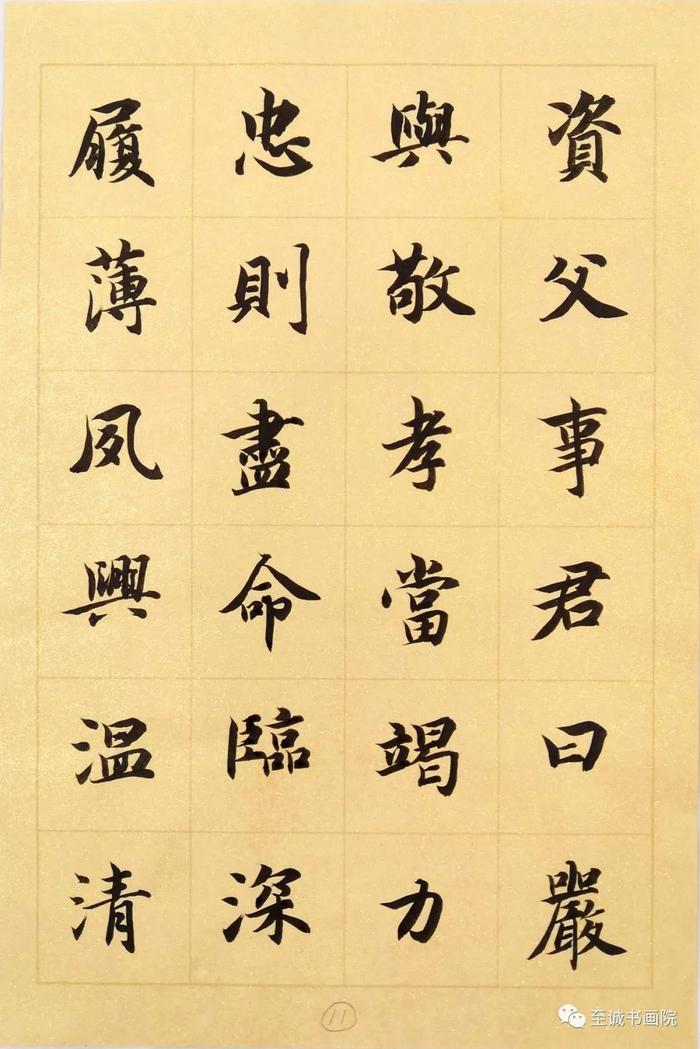 資父事君曰嚴
與敬孝當竭力
忠則盡命臨深
履薄夙興温清
11
至诚书画院